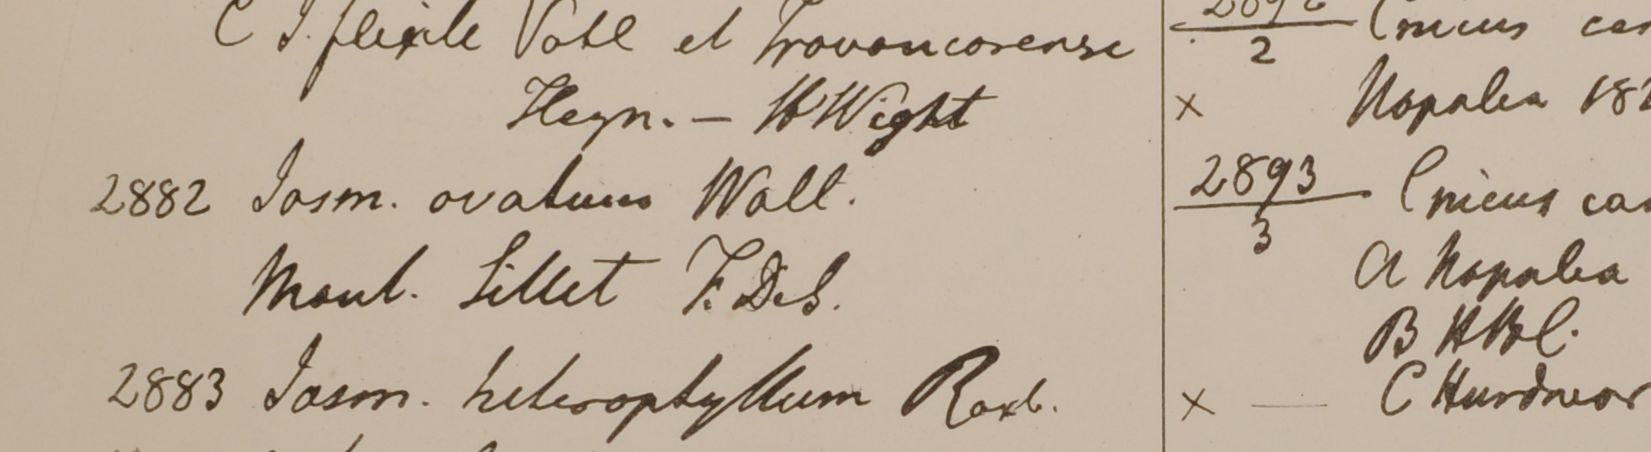 C J. flexile Vahl et Travancorense
Heyn. — H Wight
2882 Jasm. ovatum Wall.
Mont. Sillet F. D. S.
2883 Jasm. heterophyllum Roxb.
2
Cnicus
x Napalia 18
2893
3
Cnicus
A Napalia
B HBC.
x — C Hurdwar